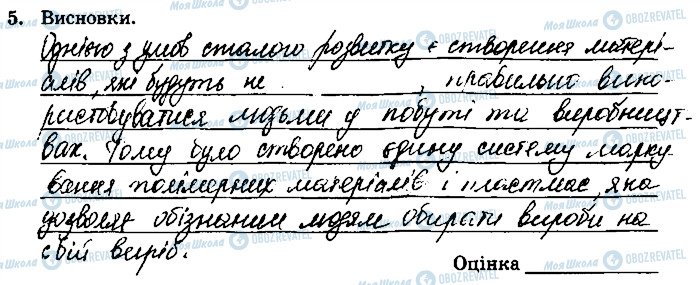 5. Висновки.
Однією з умов сталого розвитку є створення матері-
алів, які будуть не , правильно вико-
ристовуватися людьми у побуті та виробницт-
вах. Тому було створено єдину систему марку
вання полімерних матеріалів і пластмас, яка
дозволяє обізнаним людям обирати вироби на
свій вибір.
Оцінка